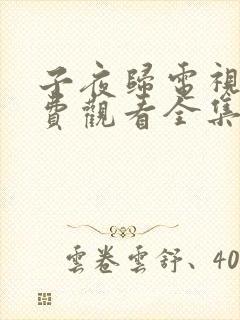 子夜歸電視
費觀看全集
雲卷雲舒、40